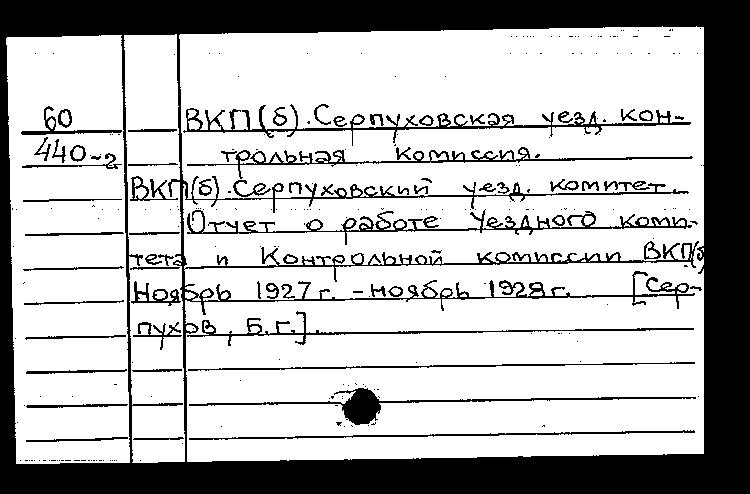 60 ВКП(б). Серпуховская уезд. кон-
440-2 трольная комиссия.
ВКП(б). Серпуховский уезд. комитет.
Отчет о работе Уездного коми-
тета и Контрольной комиссии ВКП(б)
Ноябрь 1927 г. - ноябрь 1928 г. [Сер-
пухов, Б.г.].